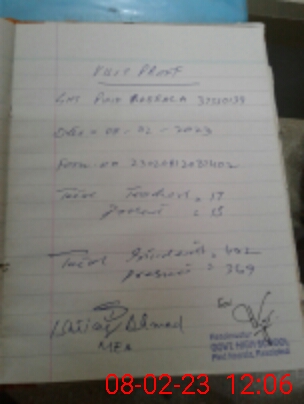 Visit Proof
GHS Pind Maskala 37310139
Date = 08-02-2023
Form no 230208120
Total Teachers = 17
Present = 15
Total Students = 442
Present = 369
Ahmad
MEA
for
Headmaster
GOVT HIGH SCHOOL
08-02-23 12:06